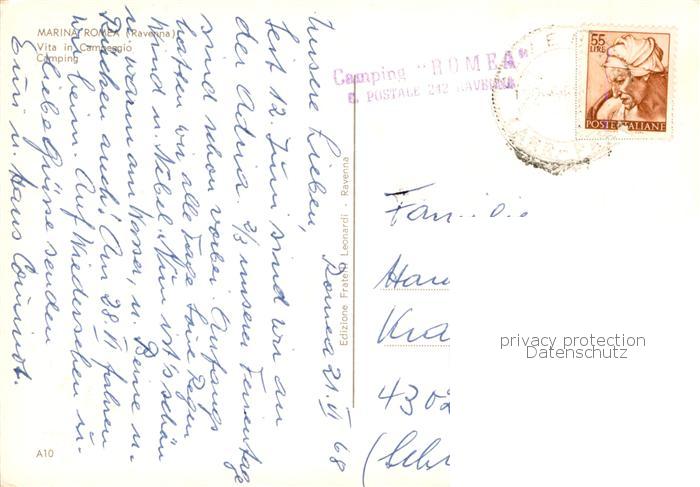 MARINA ROMEA (Ravenna)
Vita in Campeggio
Camping
Camping "ROMEA"
C. POSTALE 242 RAVENNA
55
LIRE
POSTE ITALIANE
Romea 21. VI 68
Unsere Lieben,
Seit 12. Juni sind wir an
der Adria. 2/3 unserer Ferientage
sind schon vorbei. Anfangs
hatten wir alle Tage Regen
Wind u. Nebel. Nun ist's schön
u. warm am Wasser, u. Beine u.
Rücken auch! Am 28. VI fahren
wir heim. Auf Wiedersehen u.
liebe Grüsse senden
u. Hans
Edizione Fratelli Leonardi - Ravenna
Familie
A10
privacy protection
Datenschutz